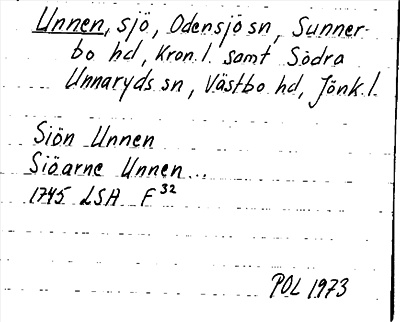 Unnen, sjö, Odensjö sn, Sunner-
bo hd, Kron. l. samt Södra
Unnaryds sn, Västbo hd, Jönk. l.
Siön Unnen
Siöarne Unnen...
1745 LSA F32
POL 1973